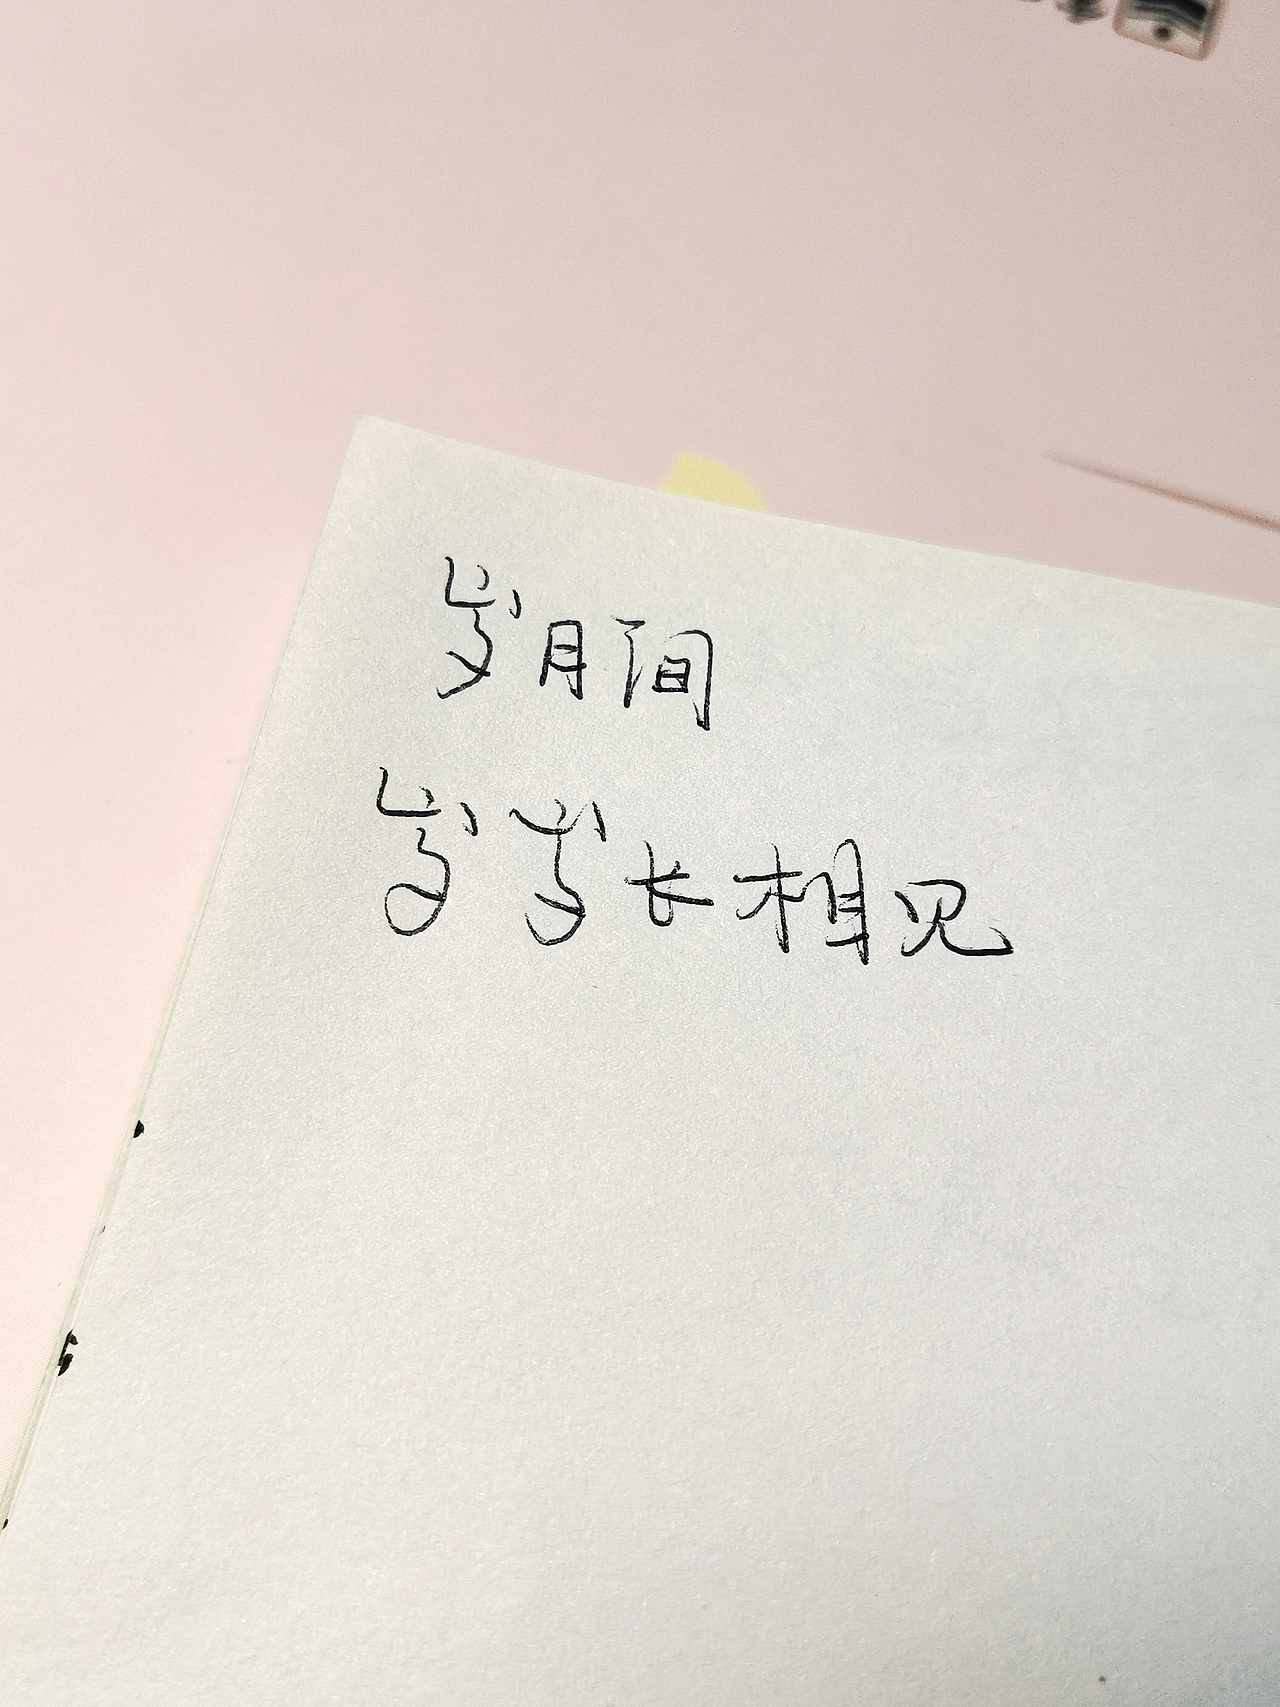 岁月间
岁岁长相见